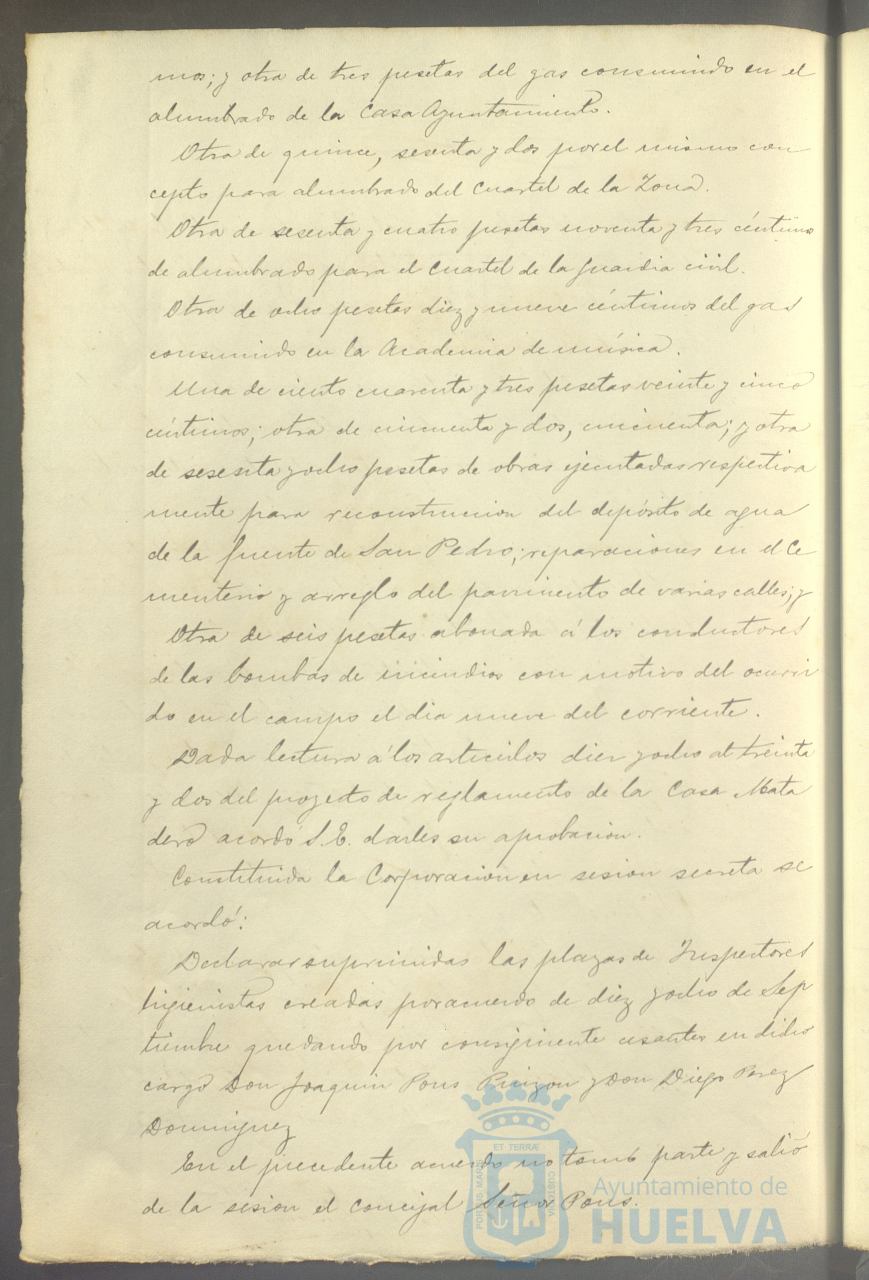 mos; y otra de tres pesetas del gas consumindo en el
alumbrado de la Casa Ayuntamiento.
Otra de quince, sesenta y dos por el mismo con
cepto para alumbrado del Cuartel de la Zona.
Otra de sesenta y cuatro pesetas noventa y tres céntimos
de alumbrado para el Cuartel de la Guardia civil.
Otra de ocho pesetas diez y nueve céntimos del gas
consumido en la Academia de música.
Una de ciento cuarenta y tres pesetas veinte y cinco
céntimos; otra de cincuenta y dos, cincuenta; y otra
de sesenta y ocho pesetas de obras ejecutadas respectiva
mente para reconstruccion del depósito de agua
de la fuente de San Pedro; reparaciones en el Ce
menterio y arreglo del pavimento de varias calles; y
Otra de seis pesetas abonada á los conductores
de las bombas de incendios con motivo del ocurri
do en el campo el dia nueve del corriente.
Dada lectura á los articulos diez y ocho al treinta
y dos del proyecto de reglamento de la Casa Mata
dero acordó S.E. darles su aprobacion.
Constituida la Corporacion en sesion secreta se
acordó:
Declarar suprimidas las plazas de Inspectores
higienistas creadas por acuerdo de diez y ocho de Sep
tiembre quedando por consiguiente cesantes en dicho
cargo Don Joaquin Pons Pinzon y Don Diego Perez
Dominguez
En el precedente acuerdo no tomó parte y salió
de la sesion el concejal Señor Pons.
ET TERRÆ
PORTUS MARIS
CUSTODIA
Ayuntamiento de
HUELVA